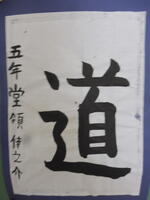 道
五年 堂領佳之介